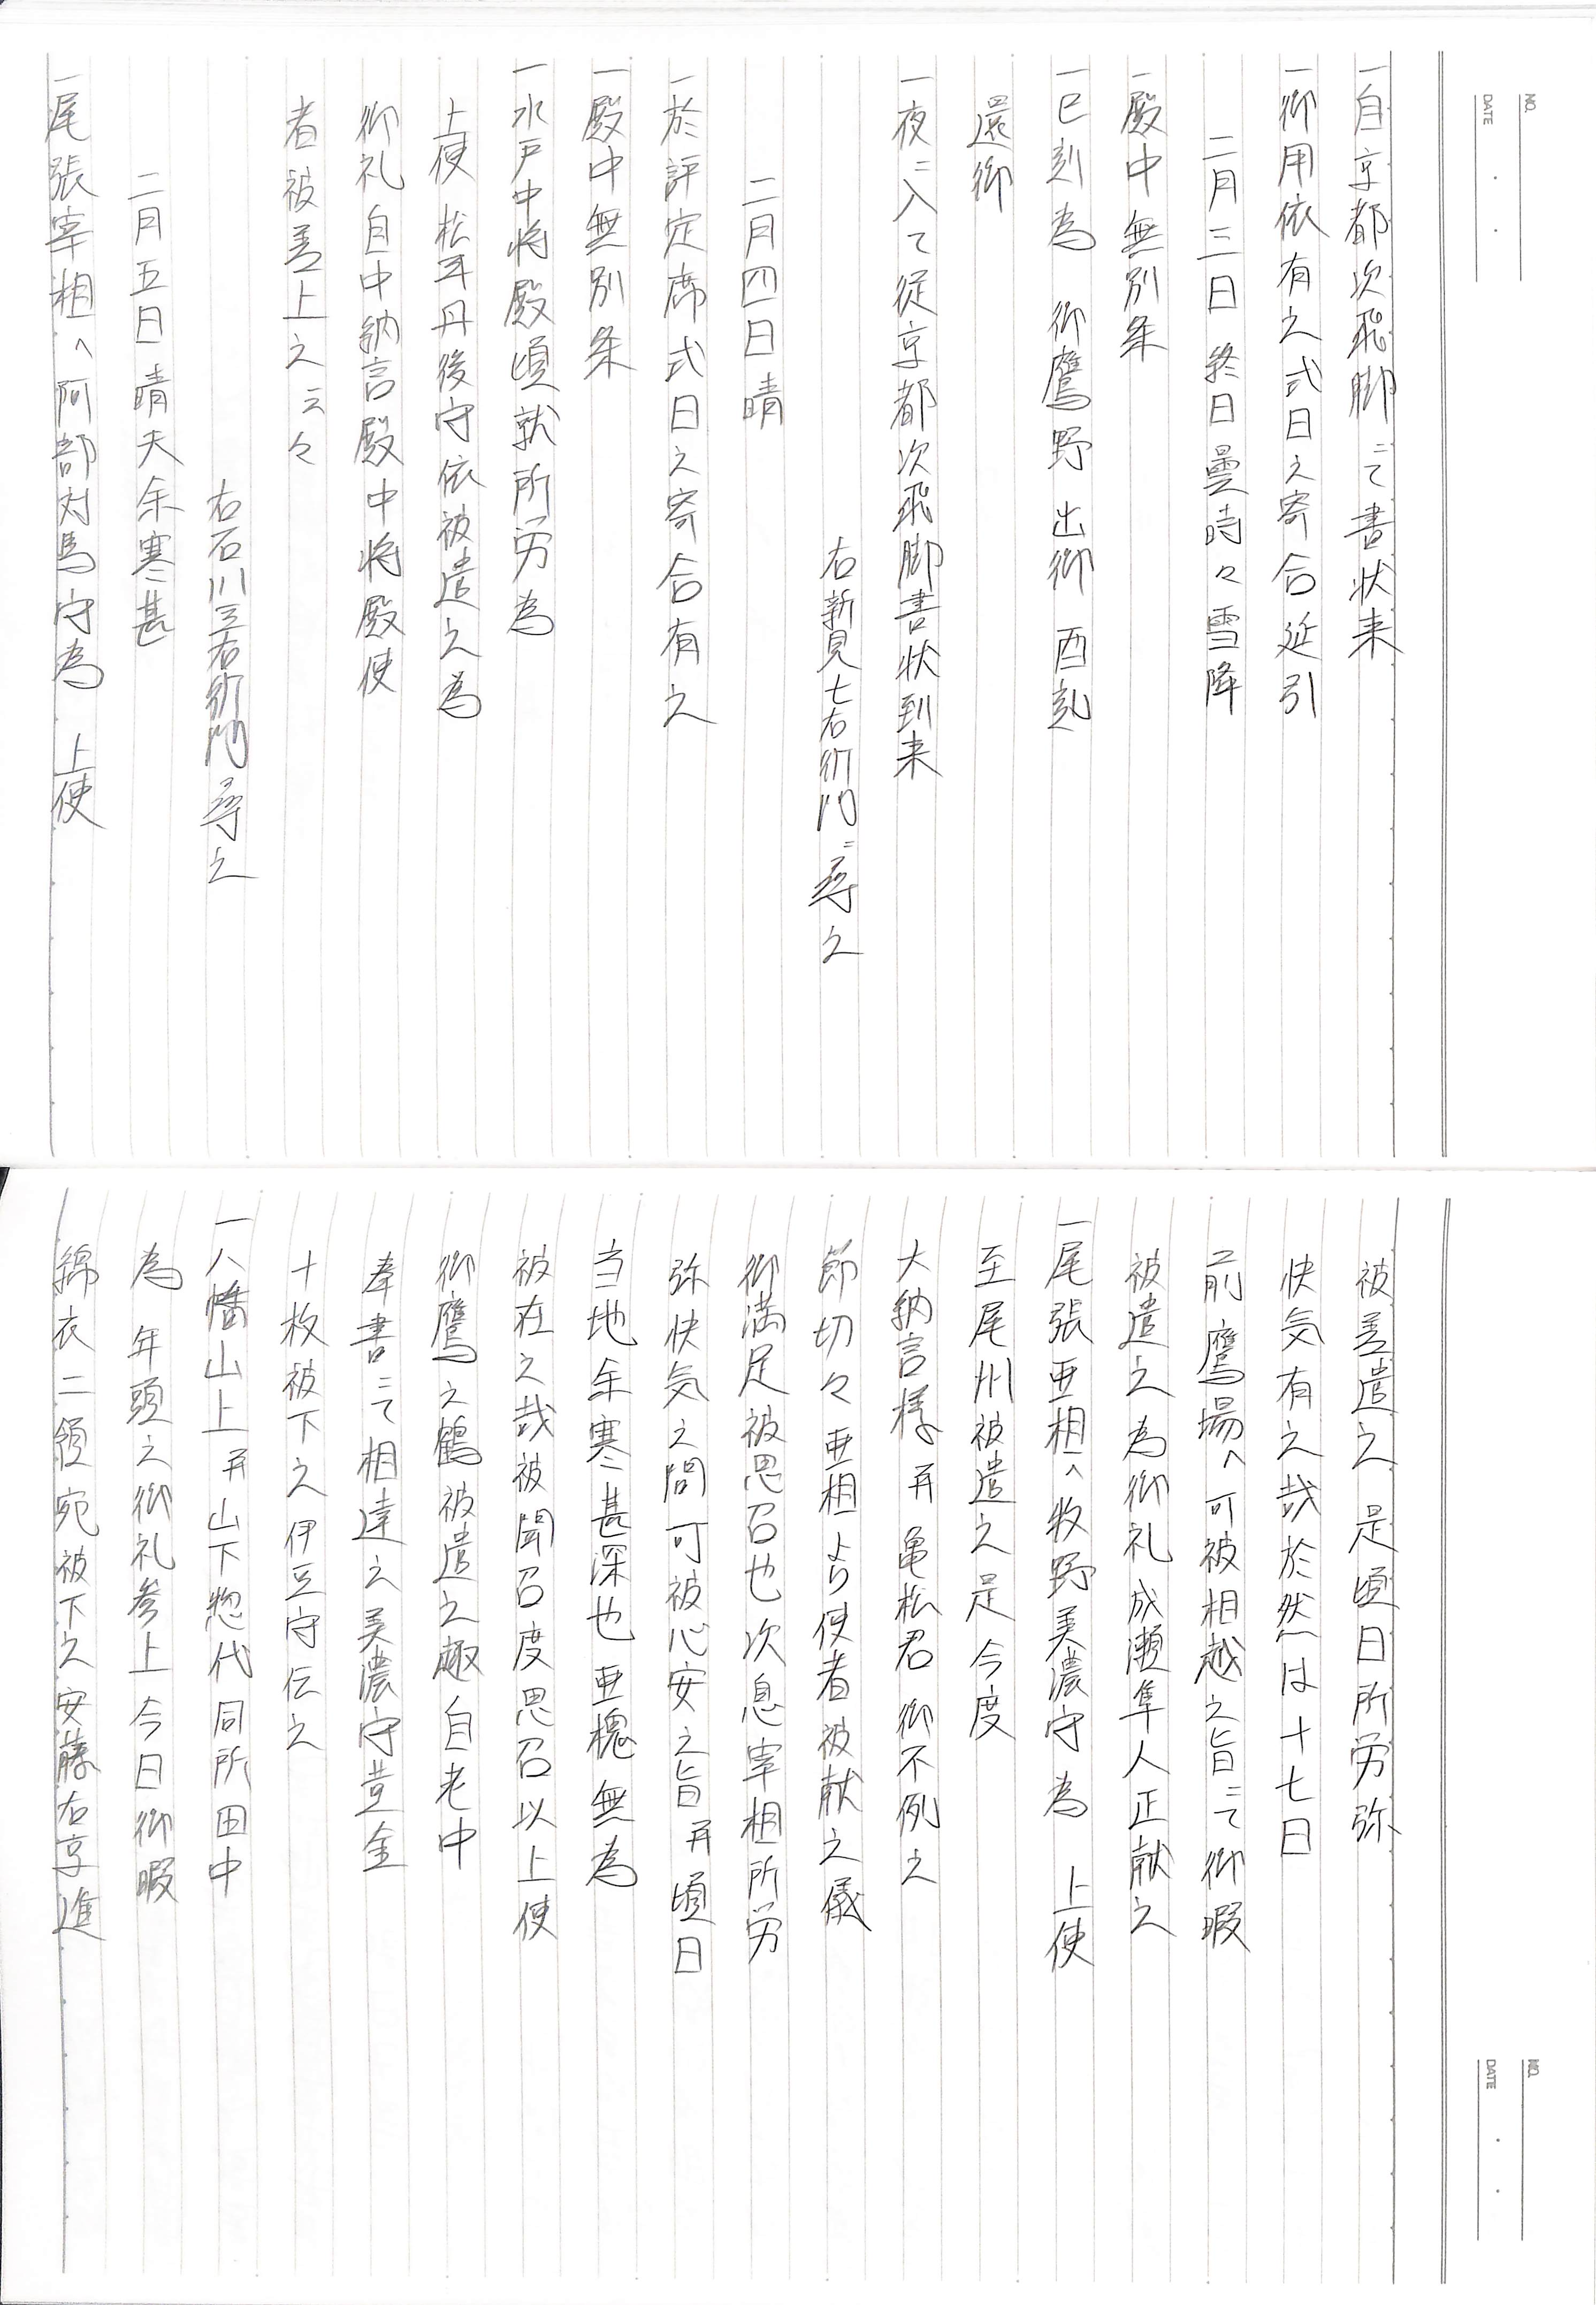 一自京都次飛脚ニて書状来
一御用依有之式日之寄合延引
二月三日 終日曇時々雪降
一殿中無別条
一巳刻為 御鷹野 出御 酉刻
還御
一夜ニ入て従京都次飛脚書状到来
右新見七右衛門ニ尋之
二月四日晴
一於評定席式日之寄合有之
一殿中無別条
一水戸中将殿頃就所労為
上使 松平丹後守依被遣之為
御礼自中納言殿中将殿使
者被差上之云々
右石川三右衛門尋之
二月五日晴天余寒甚
一尾張宰相へ阿部対馬守為 上使
被差遣之是頃日所労弥
快気有之哉於然は十七日
前鷹場へ可被相越之旨ニて御暇
被遣之為御礼成瀬隼人正献之
一尾張亜相へ牧野美濃守為 上使
至尾州被遣之是今度
大納言様并亀松君御不例之
節切々亜相より使者被献之儀
御満足被思召也次息宰相所労
弥快気之間可被心安之旨并頃日
当地余寒甚深也亜槐無為
被在之哉被聞召度思召以上使
御鷹之鶴被遣之趣自老中
奉書ニて相達之美濃守黄金
十枚被下之伊豆守伝之
一八幡山上并山下惣代同所田中
為 年頭之御礼参上今日御暇
綿衣二領宛被下之安藤右京進